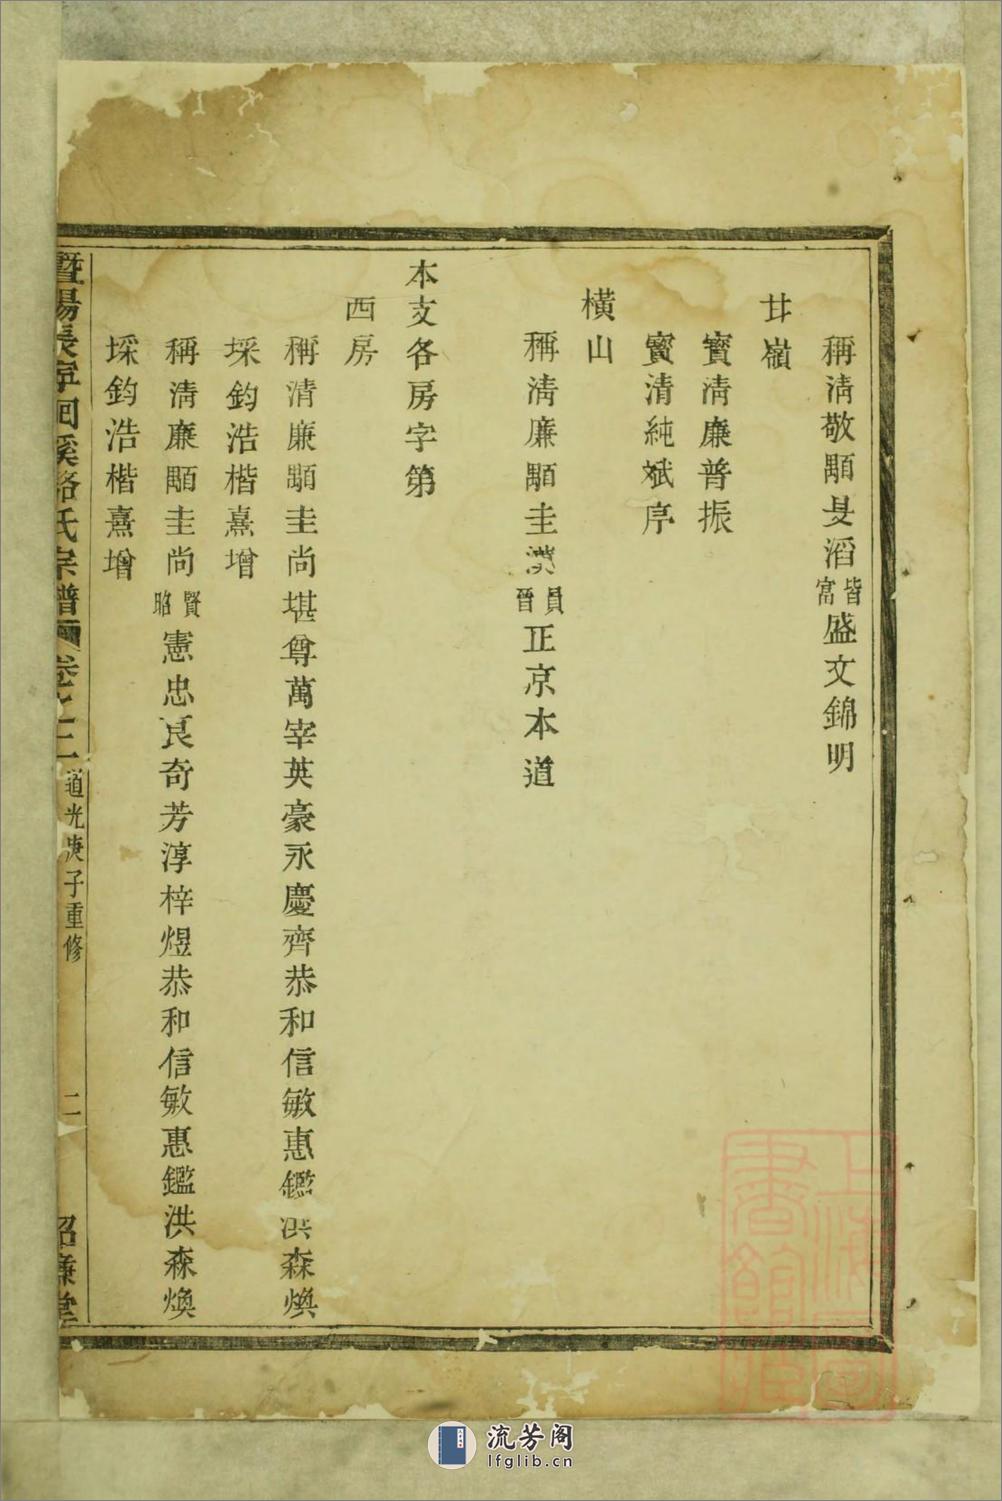 稱淸敬顒旻滔皆富盛文錦明
廿嶺
寳淸廉普振
寳清純斌序
橫山
稱淸廉顒圭員晉正京本道
本支各房字第
西房
稱清廉顒圭尚堪尊萬宰英豪永慶齊恭和信敏惠鑑洪森煥
埰鈞浩楷熹增
稱淸廉顒圭尚賢昭憲忠良奇芳淳梓煜恭和信敏惠鑑洪森煥
埰鈞浩楷熹增
暨陽長寧回溪駱氏宗譜
道光庚子重修
二
昭廉堂
上海圖書館藏
流芳阁
lfglib.cn